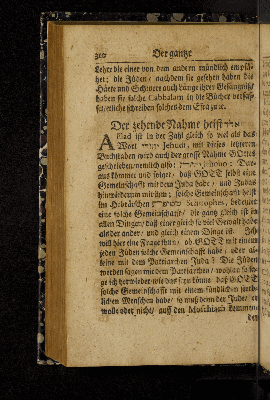 310 Der gantze
Lehre die einer von dem andern mündlich empfä-
het; die Jüden/ nachdem sie gesehen haben die
Härte und Schwere auch länge ihrer Gefängniß/
haben sie solche Cabbalam in die Bücher verfas-
set/ etliche schreiben solches dem Esra zu.
Der zehende Nahme heist
Das ist in der Zahl gleich so viel als das
Wort Jehudi, mit dieses letztern
Buchstaben wird auch der grosse Nahme GOttes
geschrieben/ nemlich also: Dar-
aus kommet und folget/ daß GOTT selbst eine
Gemeinschafft mit dem Juda habe/ und Juda
hinwiederum mit ihm; solche Gemeinschafft heist
im Hebräischen bedeutet
eine solche Gemeinschafft/ die gantz gleich ist in
allen Dingen/ daß einer gleich so viel Gewalt habe
als der ander/ und gleich einem Dinge ist. Ich
will hier eine Frage thun/ ob GOTT mit einem
jeden Jüden solche Gemeinschafft habe/ oder al-
leine mit dem Patriarchen Juda? Die Jüden
werden sagen mit dem Patriarchen/ wohlan so fra-
ge ich/ wie das seyn könne/ daß GOTT
solche Gemeinschafft mit einem sündlichen
lichen Menschen habe/ so muß denn der Jude/ er
wolle oder nicht/ auff den
den